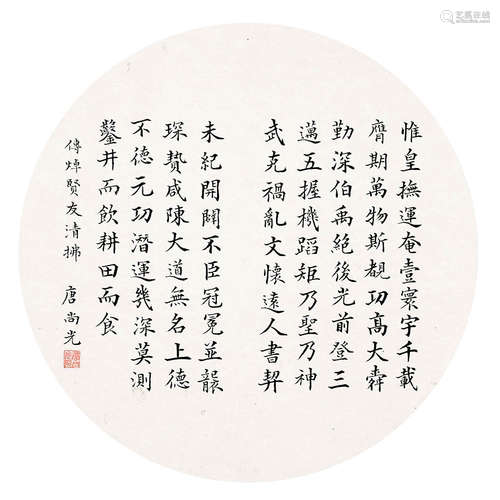 惟皇撫運奄壹寰宇千載
膺期萬物斯覩功髙大舜
勤深伯禹絕後光前登三
邁五握機蹈矩乃聖乃神
武克禍亂文懷遠人書契
未紀開闢不臣冠冕並襲
琛贄咸陳大道無名上德
不德元功潛運幾深莫測
鑿井而飲耕田而食
傳焯賢友清拂 唐尚光
艺狐在线